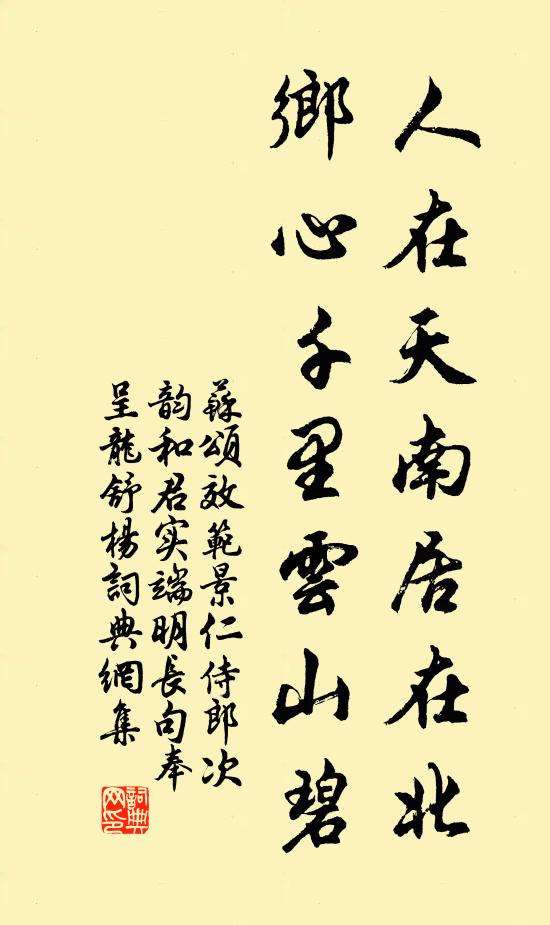 人在天南居在北
鄉心千里雲山碧
蘇頌效範景仁侍郎次
韵和君实端明長句奉
呈龍舒楊詞典網集
詞典网印